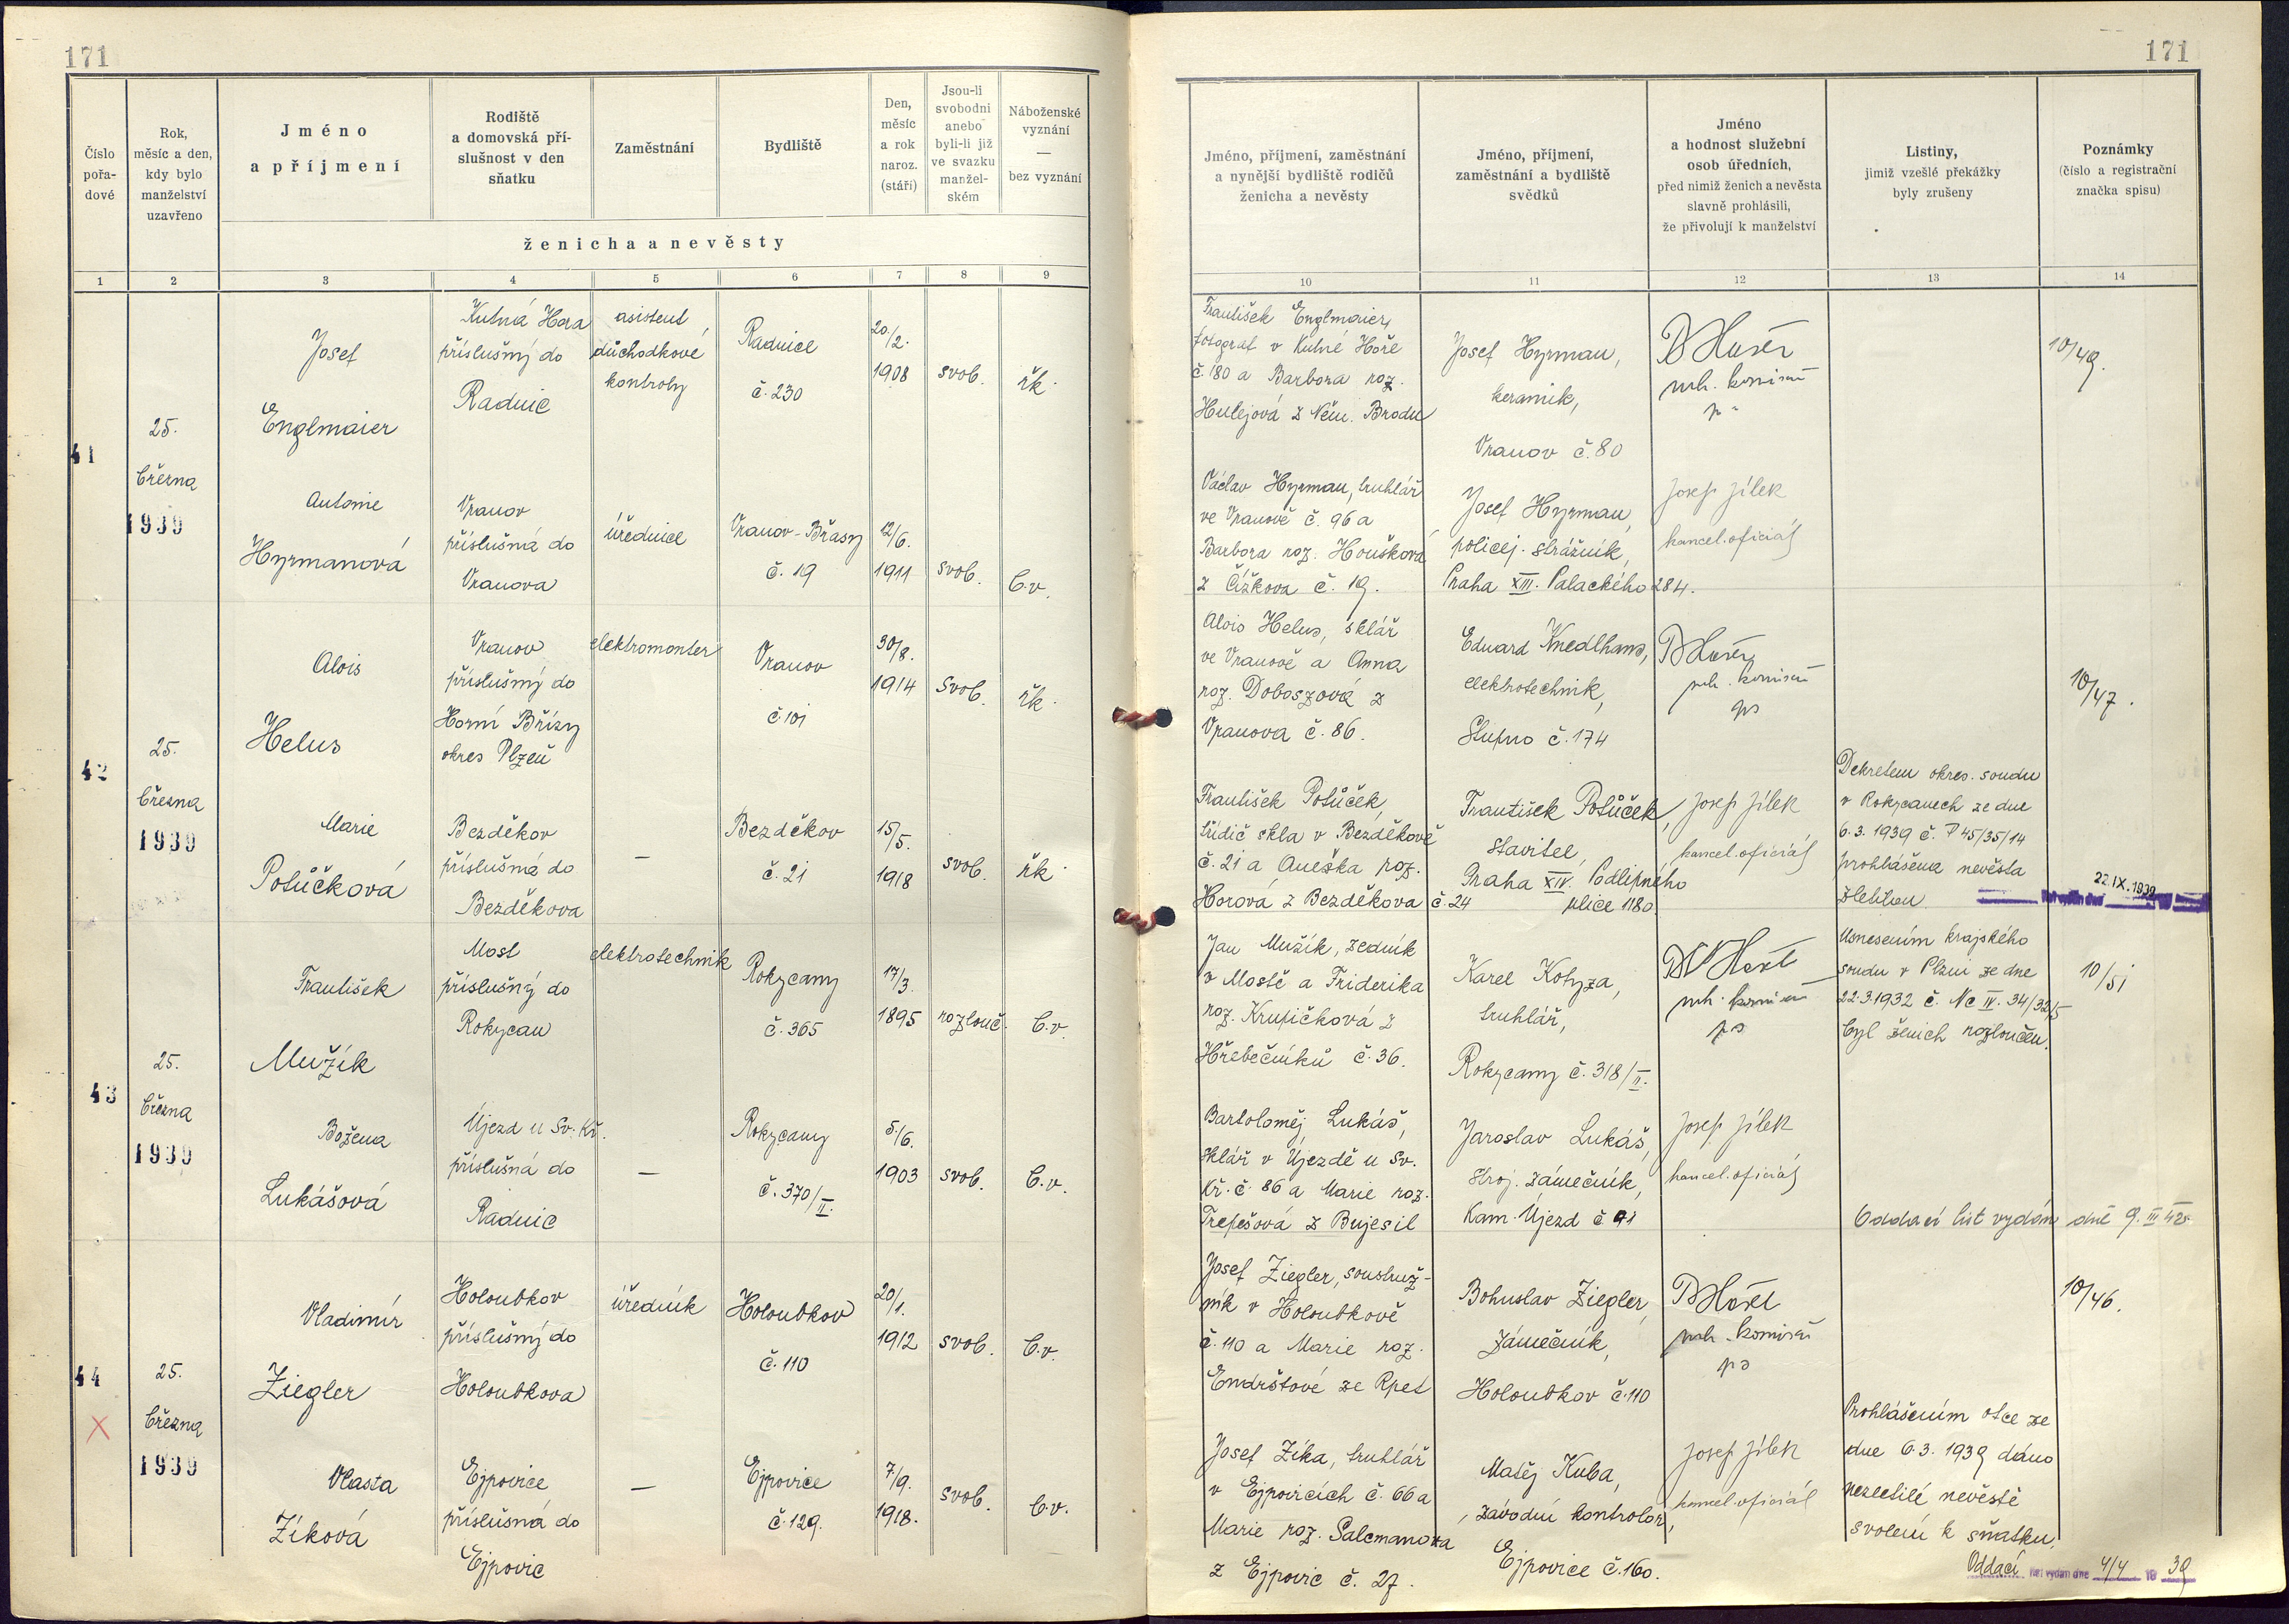 171
171
Číslo pořa- dové
Rok, měsíc a den, kdy bylo manželství uzavřeno
Jméno a příjmení
Rodiště a domovská pří- slušnost v den sňatku
Zaměstnání
Bydliště
Den, měsíc a rok naroz. (stáří)
Jsou-li svobodni anebo byli-li již ve svazku manžel- ském
Náboženské vyznání — bez vyznání
ženicha a nevěsty
1 2 3 4 5 6 7 8 9
Jméno, příjmení, zaměstnání a nynější bydliště rodičů ženicha a nevěsty
Jméno, příjmení, zaměstnání a bydliště svědků
Jméno a hodnost služební osob úředních, před nimiž ženich a nevěsta slavně prohlásili, že přivolují k manželství
Listiny, jimiž vzešlé překážky byly zrušeny
Poznámky (číslo a registrační značka spisu)
10 11 12 13 14
41
25.
března
1939
Josef
Englmaier
Kutná Hora
příslušný do
Radnic
asistent
důchodkové
kontroly
Radnice
č. 230
20/2.
1908
svob.
řk.
František Englmaier,
fotograf v Kutné Hoře
č. 180 a Barbora roz.
Hulejová z Něm. Brodu
Josef Hyrman,
keramik,
Vranov č. 80
komisař
10/49.
Antonie
Hyrmanová
Vranov
příslušná do
Vranova
úřednice
Vranov-Břasy
č. 19
12/6.
1911
svob.
b.v.
Václav Hyrman, truhlář
ve Vranově č. 96 a
Barbora roz. Houšková
z Čížkova č. 19.
Josef Hyrman,
policej. strážník,
Praha XIII. Palackého 284.
Josef Jílek
kancel. oficiál
42
25.
března
1939
Alois
Helus
Vranov
příslušný do
Horní Břízy
okres Plzeň
elektromonter
Vranov
č. 101
30/8.
1914
svob.
řk.
Alois Helus, sklář
ve Vranově a Anna
roz. Doboszová z
Vranova č. 86.
Eduard Knedlhans,
elektrotechnik,
Stupno č. 174
komisař
10/47.
Marie
Potůčková
Bezděkov
příslušná do
Bezděkova
—
Bezděkov
č. 21
15/5.
1918
svob.
řk.
František Potůček,
řidič skla v Bezděkově
č. 21 a Anežka roz.
Horová z Bezděkova č. 24
František Potůček,
stavitel,
Praha XIV. Podlipného
ulice 1180.
Josef Jílek
kancel. oficiál
Dekretem okres. soudu
v Rokycanech ze dne
6.3.1939 č. P 45/35/14
prohlášena nevěsta
zletilou.
22.IX.1939
43
25.
března
1939
František
Mužík
Most
příslušný do
Rokycan
elektrotechnik
Rokycany
č. 365
17/3.
1895
rozlouč.
b.v.
Jan Mužík, zedník
v Mostě a Friderika
roz. Krupičková z
Hřebečníků č. 36.
Karel Kotyza,
truhlář,
Rokycany č. 318/II.
komisař
Usnesením krajského
soudu v Plzni ze dne
22.3.1932 č. Nc IV. 34/32/5
byl ženich rozloučen.
10/51
Božena
Lukášová
Újezd u Sv. Kř.
příslušná do
Radnic
—
Rokycany
č. 370/II.
5/6.
1903
svob.
b.v.
Bartoloměj Lukáš,
sklář v Újezdě u Sv.
Kř. č. 86 a Marie roz.
Trefešová z Bujesil
Jaroslav Lukáš,
stroj. zámečník,
Kam. Újezd č. 91
Josef Jílek
kancel. oficiál
Oddací list vydán dne 9. III 42.
44
25.
března
1939
Vladimír
Ziegler
Holoubkov
příslušný do
Holoubkova
úředník
Holoubkov
č. 110
20/1.
1912
svob.
b.v.
Josef Ziegler, soustruž-
ník v Holoubkově
č. 110 a Marie roz.
Endrštové ze Rpet
Bohuslav Ziegler,
zámečník,
Holoubkov č. 110
komisař
10/46.
Vlasta
Zíková
Ejpovice
příslušná do
Ejpovic
—
Ejpovice
č. 129.
7/9.
1918.
svob.
b.v.
Josef Zíka, truhlář
v Ejpovicích č. 66 a
Marie roz. Salcmanova
z Ejpovic č. 27.
Matěj Kuba,
závodní kontrolor,
Ejpovice č. 160.
Josef Jílek
kancel. oficiál
Prohlášením otce ze
dne 6.3.1939 dáno
nezletilé nevěstě
svolení k sňatku.
Oddací list vydán dne 4/4 19 39